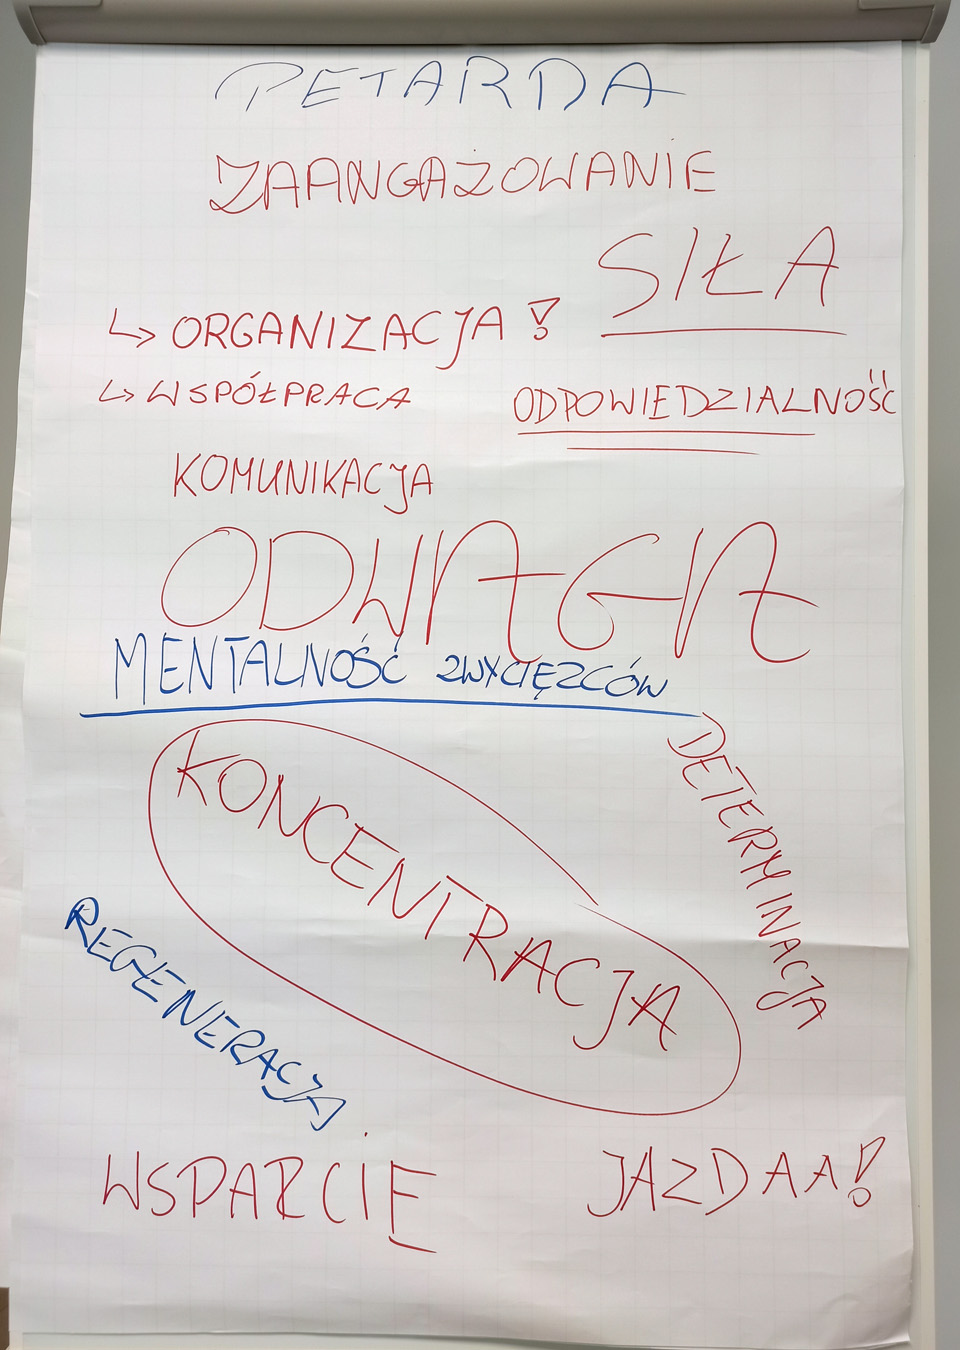 PETARDA
ZAANGAŻOWANIE
SIŁA
↳ ORGANIZACJA!
↳ WSPÓŁPRACA
ODPOWIEDZIALNOŚĆ
KOMUNIKACJA
ODWAGA
MENTALNOŚĆ ZWYCIĘZCÓW
DETERMINACJA
KONCENTRACJA
REGENERACJA
WSPARCIE
JAZDAA!